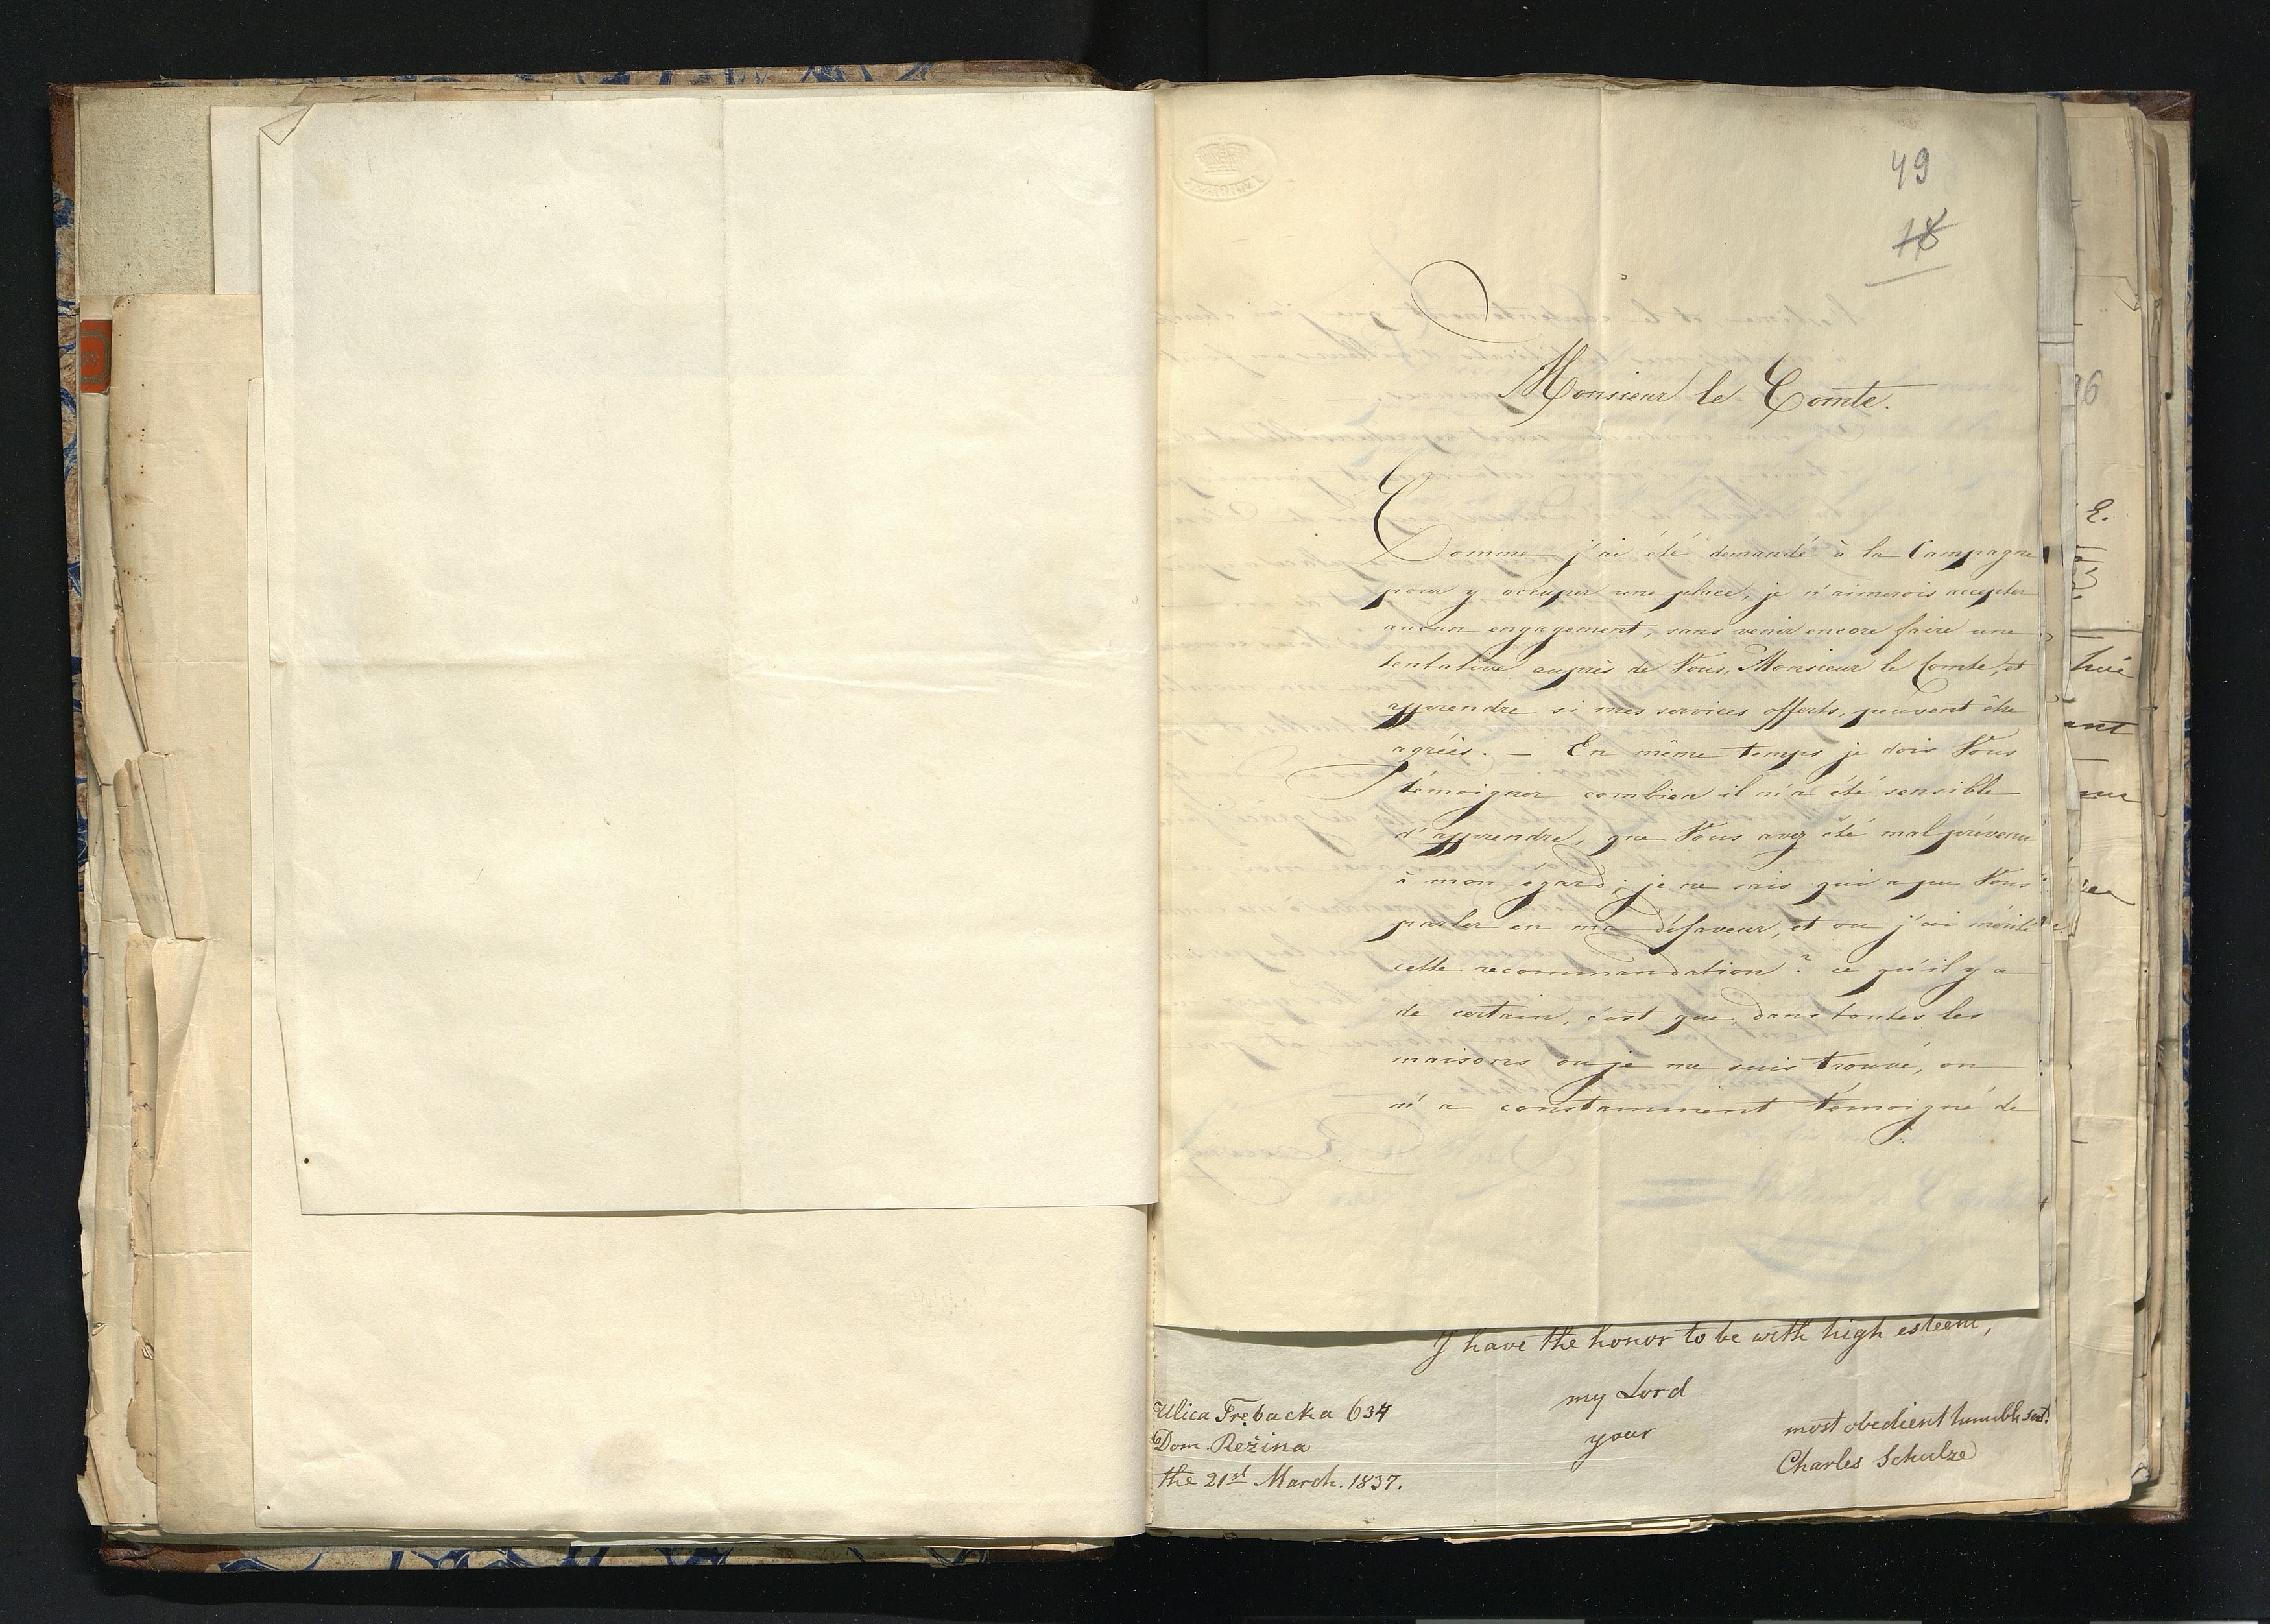 49
18
Monsieur le Comte.
Comme j'ai été demandé à la Campagne
pour y occuper une place, je n'aimerois accepter
aucun engagement, sans venir encore faire une
tentative auprès de Vous, Monsieur le Comte, et
apprendre si mes services offerts, peuvent être
agréés. — En même temps je dois Vous
témoigner combien il m'a été sensible
d'apprendre, que Vous avez été mal prévenu
à mon égard; je ne sais qui a pu Vous
parler en ma défaveur, et ou j'ai mérité
cette recommandation? ce qu'il y a
de certain, c'est que, dans toutes les
maisons ou je me suis trouvé, on
m'a constamment témoigné de
I have the honor to be with high esteem,
my Lord
your
most obedient humble svt.
Charles Schulze
Ulica Trębacka 634
Dom Reżina
the 21st March. 1837.